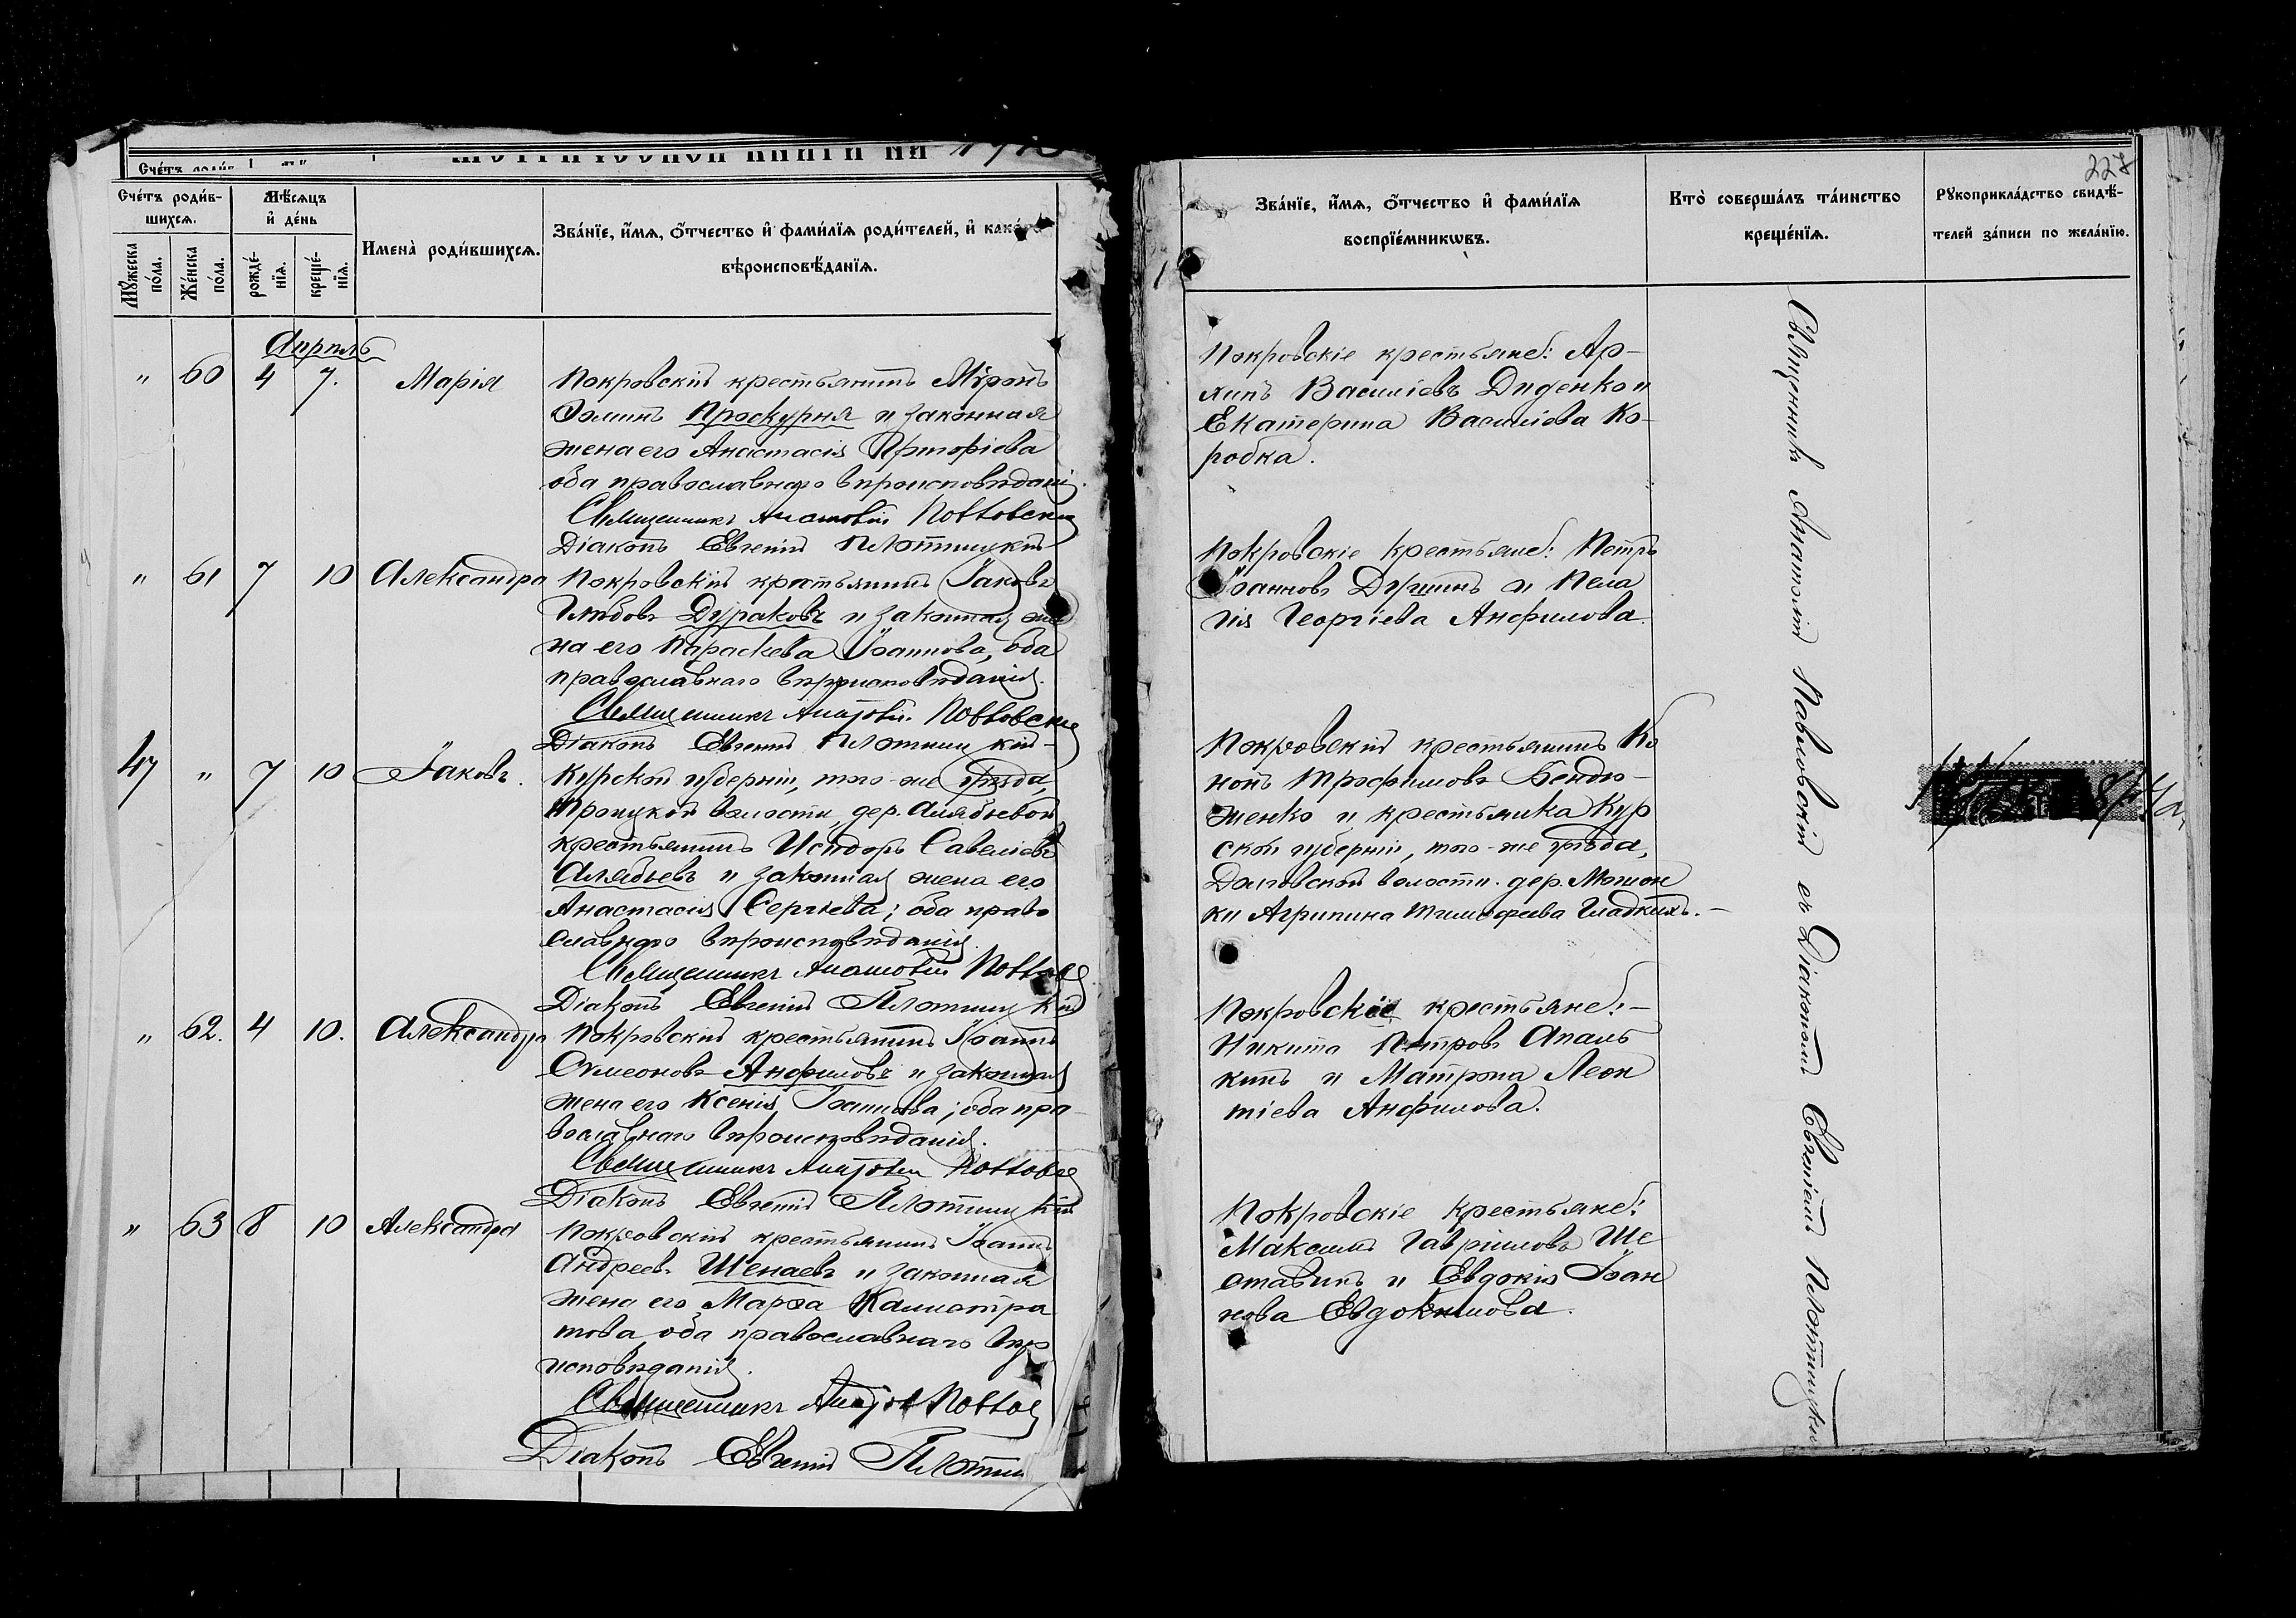 227
Счетъ родив-
шихся.
Мѣсяцъ
и день
Имена родившихся.
Званіе, имя, отчество и фамилія родителей, и какого
вѣроисповѣданія.
Мужеска
пола.
Женска
пола.
рожде-
нія.
креще-
нія.
Апрѣль
" 60 4 7. Марія
Покровскій крестьянинъ Мѵронъ
Ѳоминъ Проскурня и законная
жена его Анастасія
оба православнаго вѣроисповѣданія.
Священникъ Анатолій Павловскій
Діаконъ Евгеній Плотницкій
" 61 7 10 Александра
Покровскій крестьянинъ Іаковъ
Глѣбовъ Дураковъ и законная же
на его Параскева Іоаннова, оба
православнаго вѣроисповѣданія.
Священникъ Анатолій Павловскій
Діаконъ Евгеній Плотницкій
47 " 7 10 Іаковъ.
Курской губерніи, того-же уѣзда,
Троицкой волости, дер. Алябьевой
крестьянинъ Исидоръ Савеліевъ
Алябьевъ и законная жена его
Анастасія Сергіева; оба право
славнаго вѣроисповѣданія.
Священникъ Анатолій
Діаконъ Евгеній Плотницкій
" 62. 4 10. Александра
Покровскій крестьянинъ Іоаннъ
Симеоновъ Анфиловъ и законная
жена его Ксенія Іоаннова; оба пра-
вославнаго вѣроисповѣданія.
Священникъ Анатолій
Діаконъ Евгеній Плотницкій
" 63 8 10 Александра
Покровскій крестьянинъ Іоаннъ
Андреевъ Шенаевъ и законная
жена его Марѳа Каллистра
това, оба православнаго вѣро
исповѣданія.
Священникъ
Діаконъ Евгеній
Званіе, имя, отчество и фамилія
воспріемниковъ.
Кто совершалъ таинство
крещенія.
Рукоприкладство свидѣ-
телей записи по желанію.
Покровскіе крестьяне: Ар-
Василіевъ Диденко и
Екатерина Василіева Ко-
робка.
Покровскіе крестьяне: Петръ
Іоанновъ и Пела
гія Георгіева Анфилова.
Покровскій крестьянинъ Ко
нонъ Трофимовъ Бендю-
женко и крестьянка Кур
ской губерніи, того-же уѣзда,
Долговской волости. дер. Мошон
ки Агрипина Тимофеева Гладкихъ.-
Покровскіе крестьяне:-
Никита Петровъ Апаль
кинъ и Матрона Леон
тіева Анфилова.
Покровскіе крестьяне:
Максимъ Гавріиловъ Ше
ставинъ и Евдокія Іоан
нова Евдокимова.
Священникъ Анатолій Павловскій съ Діакономъ Евгеніемъ Плотницкимъ